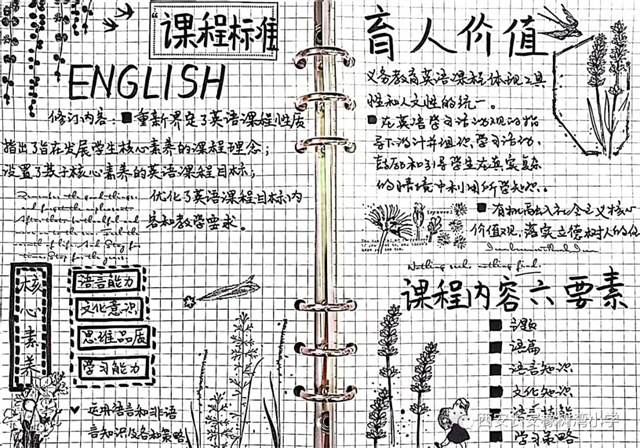 课程标准
ENGLISH
修订内容：■重新界定了英语课程性质
指出了旨在发展学生核心素养的课程理念；
设置了基于核心素养的英语课程目标；
优化了英语课程目标内
容和教学要求。
核心素养
语言能力
文化意识
思维品质
学习能力
✓ 运用语言和非语
言知识及各种策略
育人价值
义务教育英语课程体现工具
性和人文性的统一。
■在英语学习活动观的指
导下设计并组织学习活动，
鼓励和引导学生在真实复杂
的情境中利用所学知识。
■有机融入社会主义核心
价值观，落实立德树人的
Nothing seek, nothing find.
课程内容六要素
■主题
■语篇
■语言知识
■文化知识
■语言技能
■学习策略